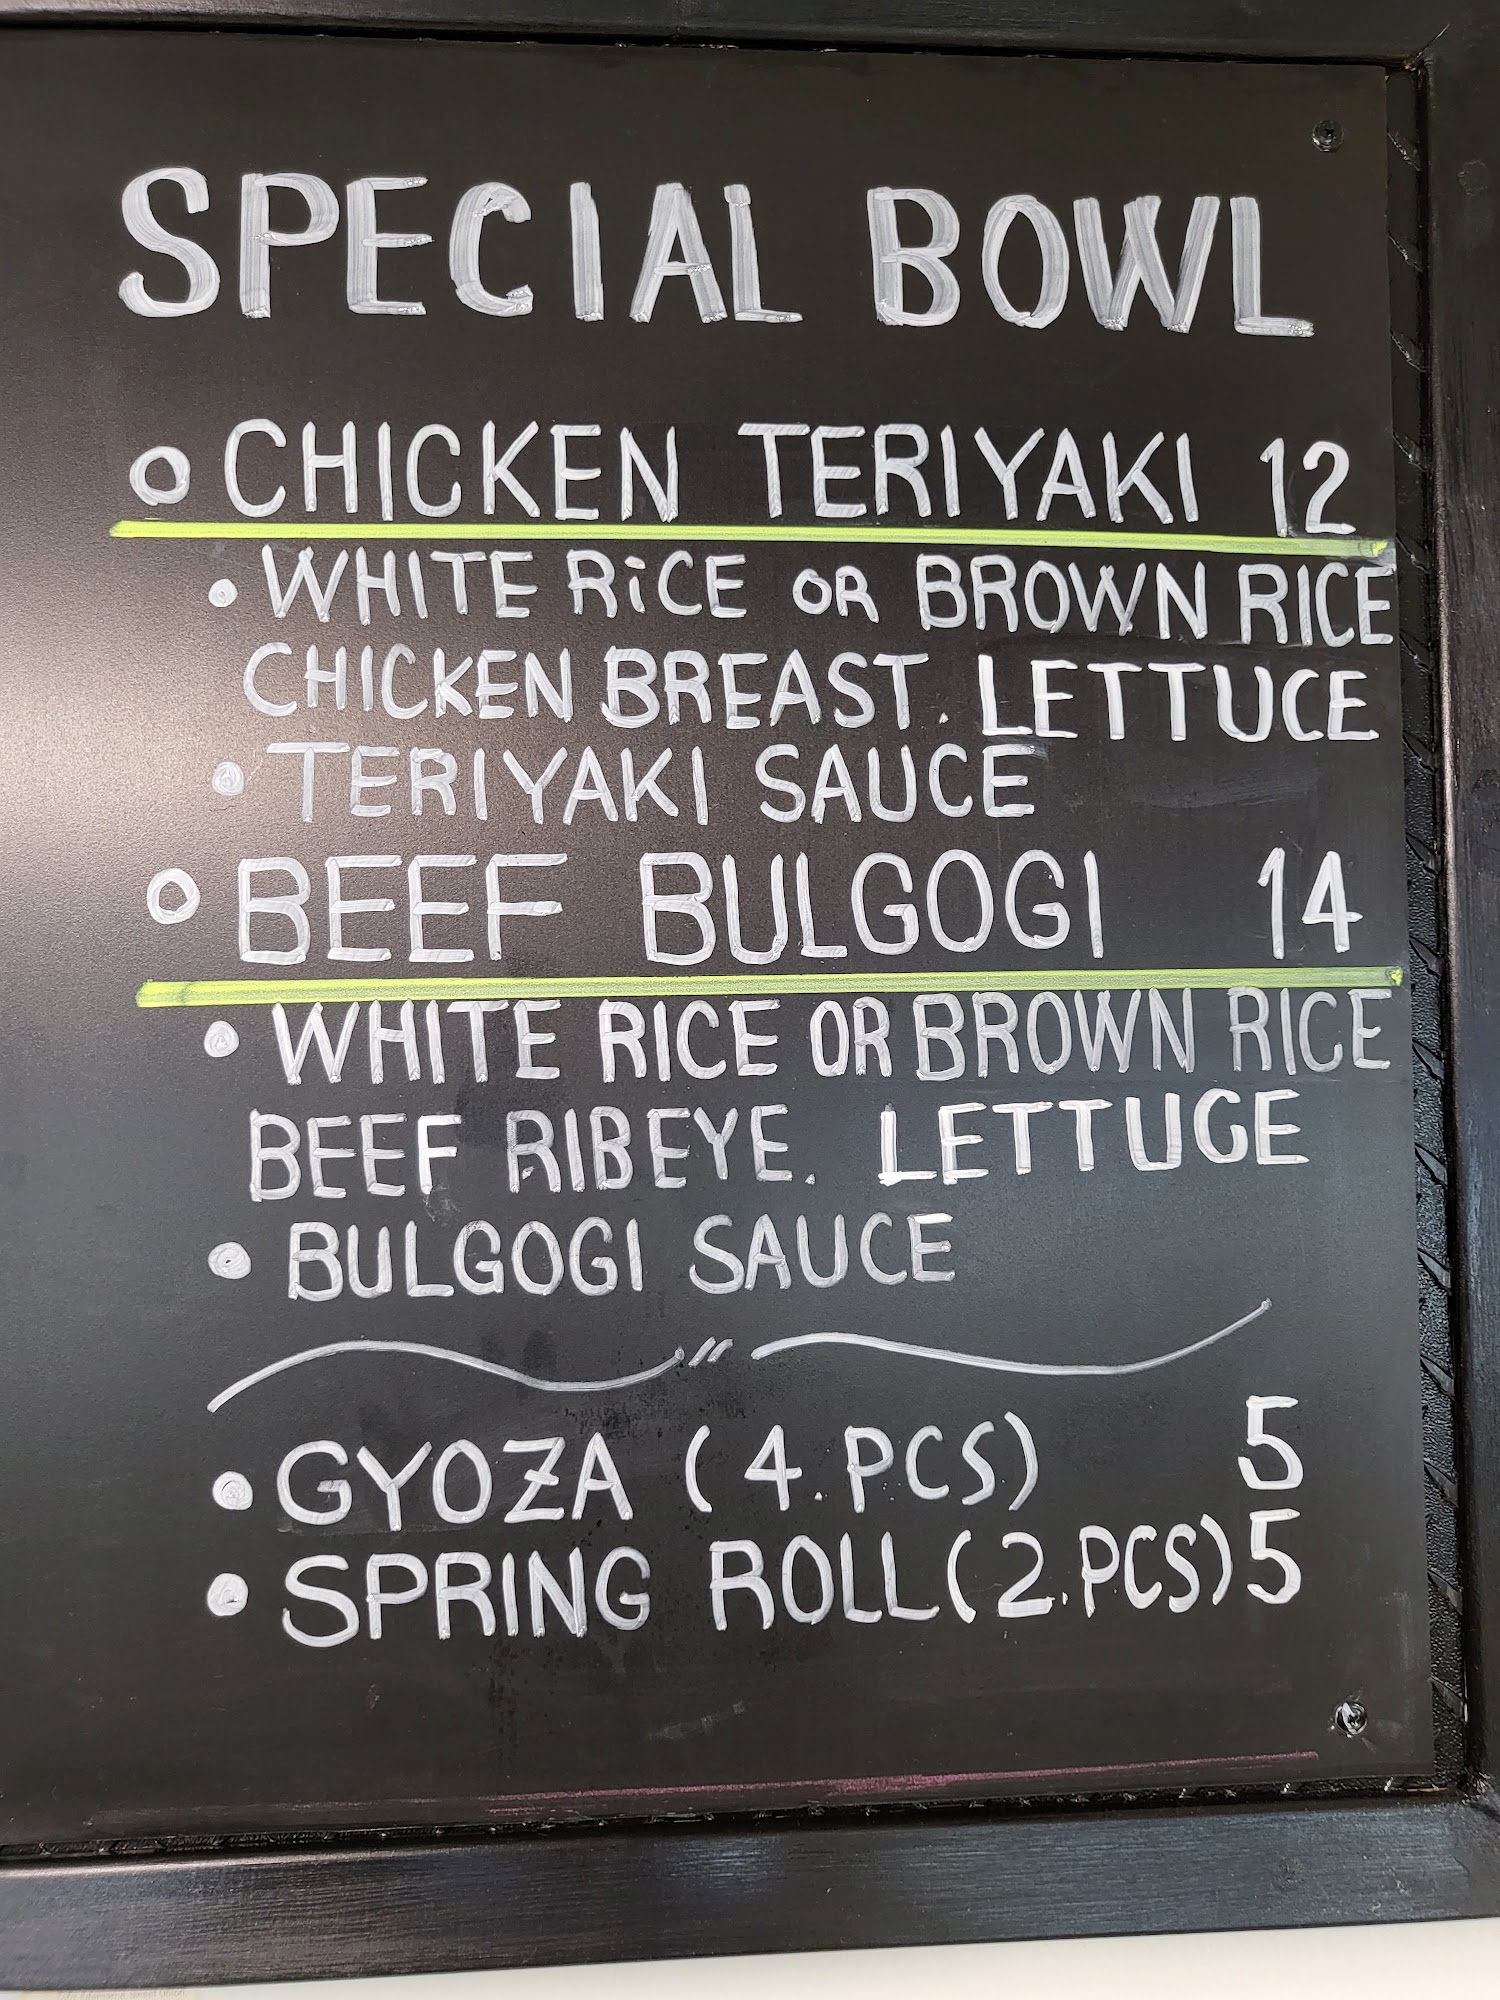 SPECIAL BOWL
CHICKEN TERIYAKI 12
• WHITE RiCE OR BROWN RICE
CHICKEN BREAST. LETTUCE
• TERIYAKI SAUCE
BEEF BULGOGI 14
• WHITE RICE OR BROWN RICE
BEEF RIBEYE. LETTUCE
• BULGOGI SAUCE
• GYOZA (4.PCS) 5
• SPRING ROLL (2.PCS) 5